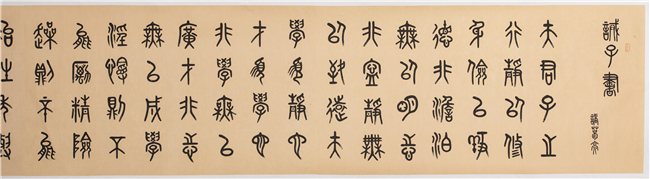 誡子書
諸葛亮
夫君子之
行靜以修
身儉以養
德非澹泊
無以明志
非寧靜無
以致遠夫
學須靜也
才須學也
非學無以
廣才非志
無以成學
淫慢則不
能勵精險
躁則不能